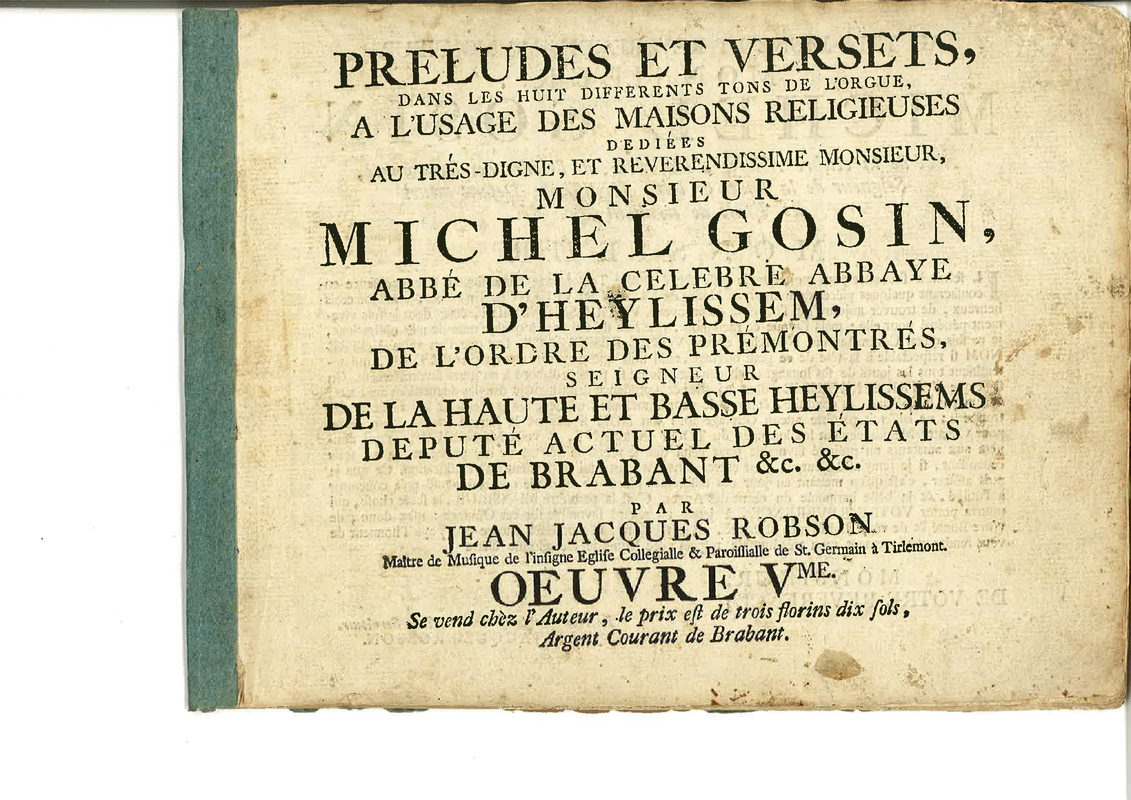 PRELUDES ET VERSETS,
DANS LES HUIT DIFFERENTS TONS DE L'ORGUE,
A L'USAGE DES MAISONS RELIGIEUSES
DEDIÉES
AU TRÉS-DIGNE, ET REVERENDISSIME MONSIEUR,
MONSIEUR
MICHEL GOSIN,
ABBÉ DE LA CELEBRE ABBAYE
D'HEYLISSEM,
DE L'ORDRE DES PRÉMONTRÉS,
SEIGNEUR
DE LA HAUTE ET BASSE HEYLISSEMS
DEPUTÉ ACTUEL DES ÉTATS
DE BRABANT &c. &c.
PAR
JEAN JACQUES ROBSON
Maître de Muſique de l'inſigne Egliſe Collegialle & Paroiſſialle de St. Germain à Tirlemont.
OEUVRE VME.
Se vend chèz l'Auteur, le prix eſt de trois florins dix ſols,
Argent Courant de Brabant.